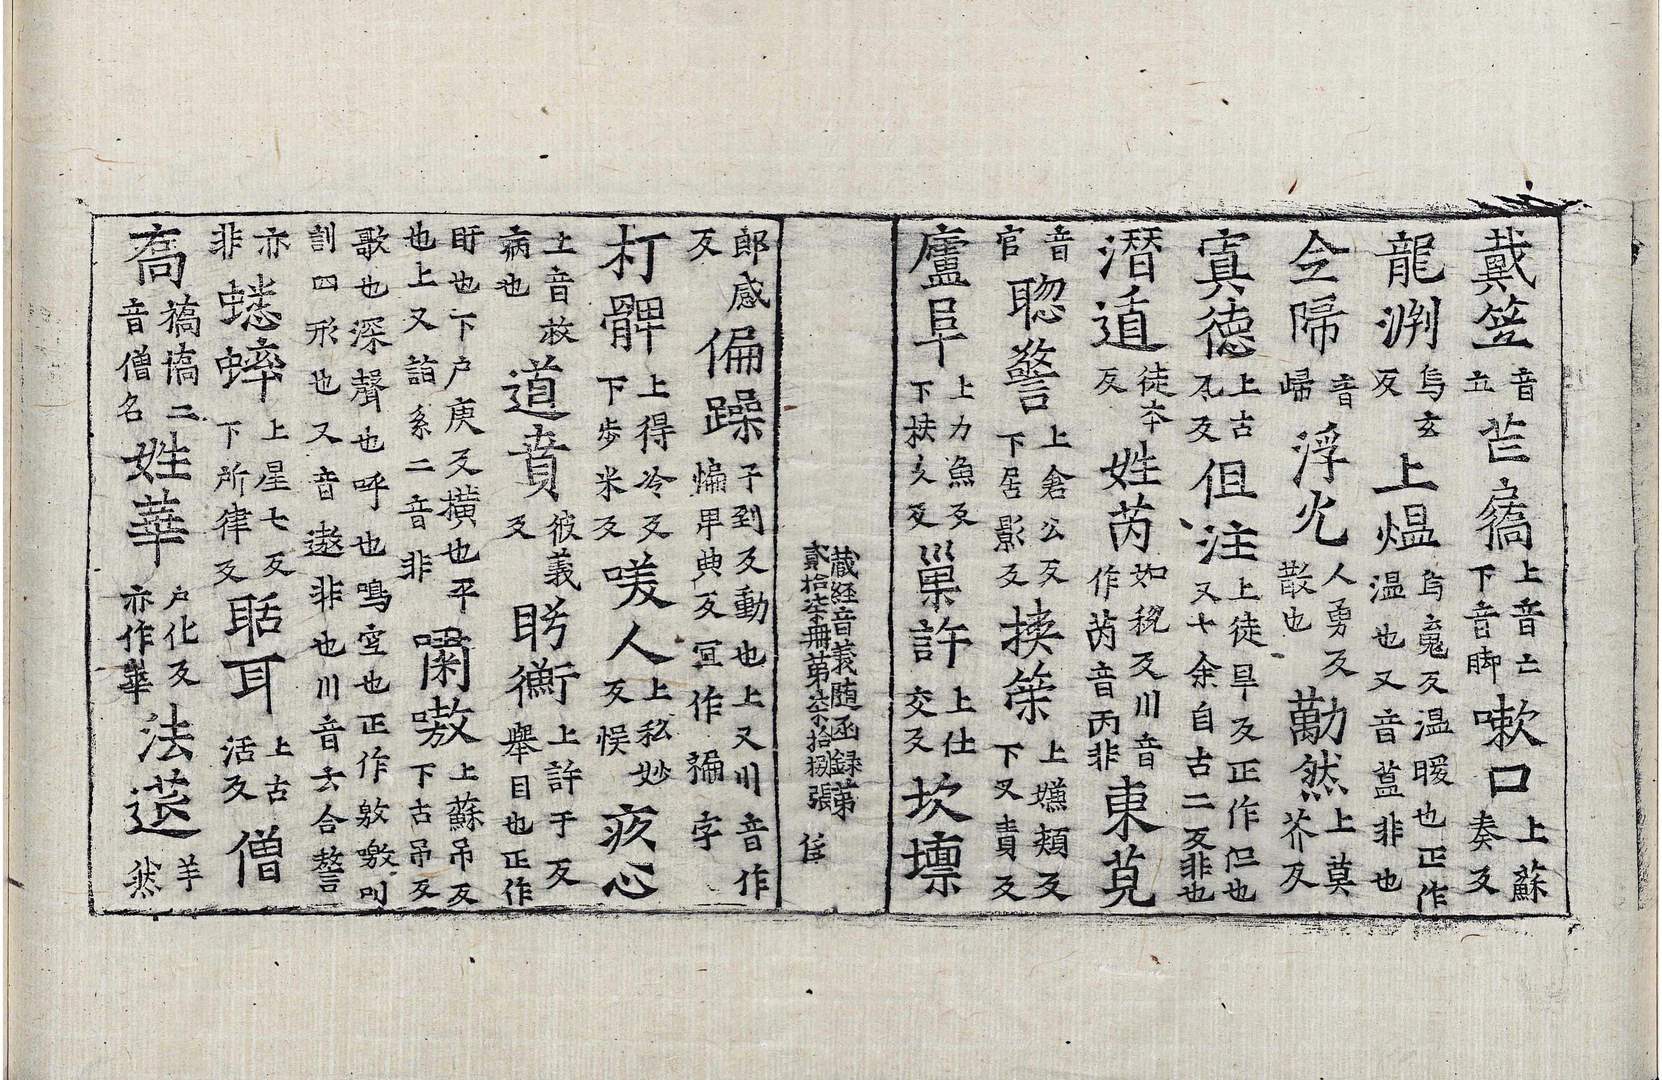 戴笠音立芒屩上音亡下音脚嗽口上蘇奏反
龍渕烏玄反上煴烏䰟反温暖也正作温也又音蒀非也
仝㱕音歸浮宂人勇反散也勱然上莫芥反
寘德上古瓦反伹注上徒旱反正作但也又七余自古二反非也
潜遁徒夲反姓芮如稅反川音作芮音丙非東莧
音官聡警上倉公反下居影反揳筞上𭡝頬反下叉責反
廬阜上力魚反下扶久反巢許上仕交反坎壈
藏経音義随函録第貳拾柒冊第柒拾捌張
郎感反偏躁子到反動也上又川音作惼𤰞典反冝作褊字
打髀上得冷反下步米反𠵅人上私妙反悮疚心
上音救病也道賁彼義反盱衡上許于反舉目也正作
盱也下户庚反撗也平也上又詣系二音非嘯嗷上蘇吊反下古吊反
歌也深聲也呼也鳴空也正作敫噭叫訓四形也又音遨非也川音去合謷
亦非蟋蟀上星七反下所律反聒耳上古活反僧
喬𥡤墧二音僧名姓華户化反亦作崋法𨗨羊然